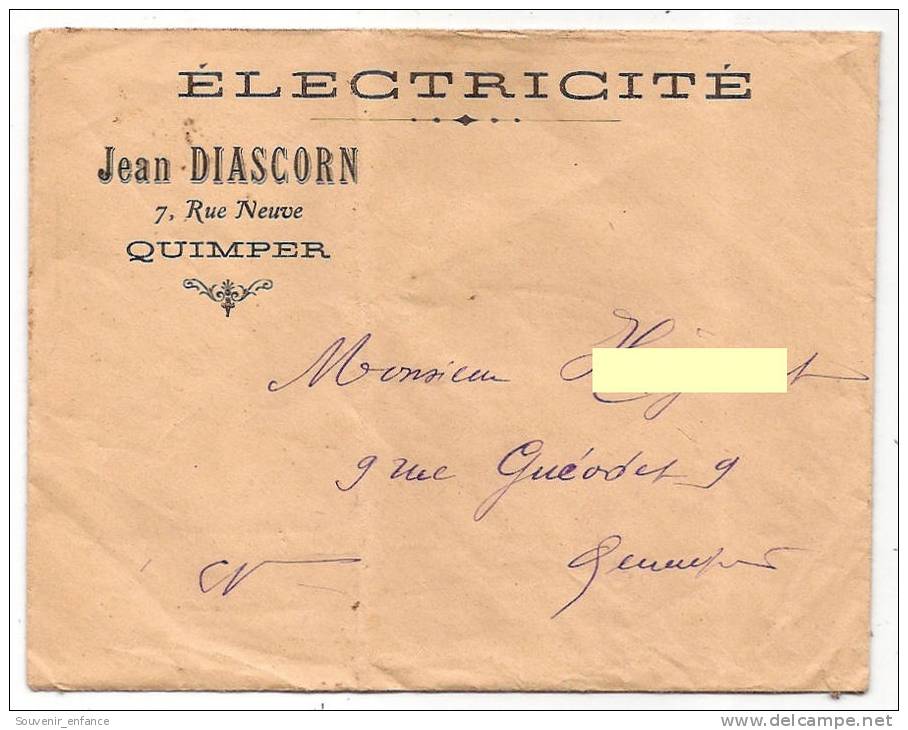 ÉLECTRICITÉ
Jean DIASCORN
7, Rue Neuve
QUIMPER
Monsieur
9 rue Guéodet 9
Quimper
Souvenir_enfance
delcampe.net